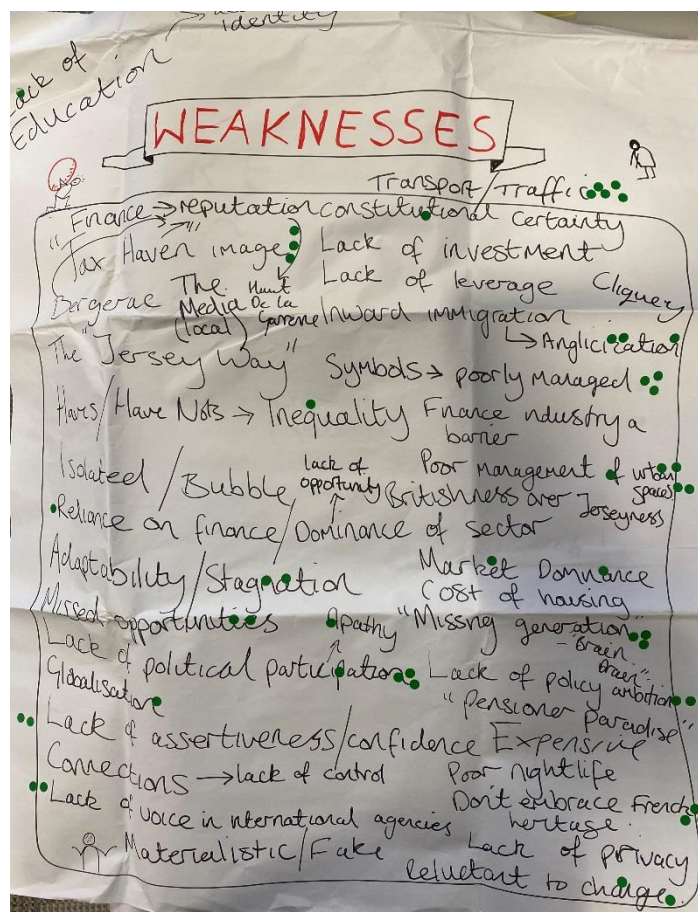 identity
Lack of
Education
WEAKNESSES
Transport/Traffic
"Finance → reputation constitutional certainty
Tax Haven image Lack of investment
Bergerac The Haut Lack of leverage Cliquey
Media De la
(local) Garenne Inward immigration
↳ Anglicization
The "Jersey Way" Symbols → poorly managed
Haves/Have Nots → Inequality Finance industry a
barrier
Isolated/Bubble lack of Poor management of urban
opportunity spaces
Britishness over Jerseyness
Reliance on finance/Dominance of sector
Adaptability/Stagnation Market Dominance
Cost of housing
Missed opportunities Apathy "Missing generation"
- "Brain
Drain"
Lack of political participation Lack of policy ambition
Globalisation "Pensioner Paradise"
Lack of assertiveness/confidence Expensive
Connections → lack of control Poor nightlife
Lack of voice in international agencies Don't embrace French
heritage.
Materialistic/Fake Lack of privacy
Reluctant to change.